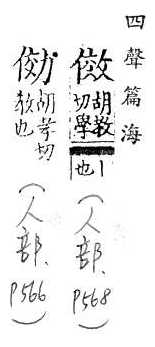 四聲篇海
傚 胡教切學丨也
(人部、P568)
俲 胡孝切教也
(人部、P566)